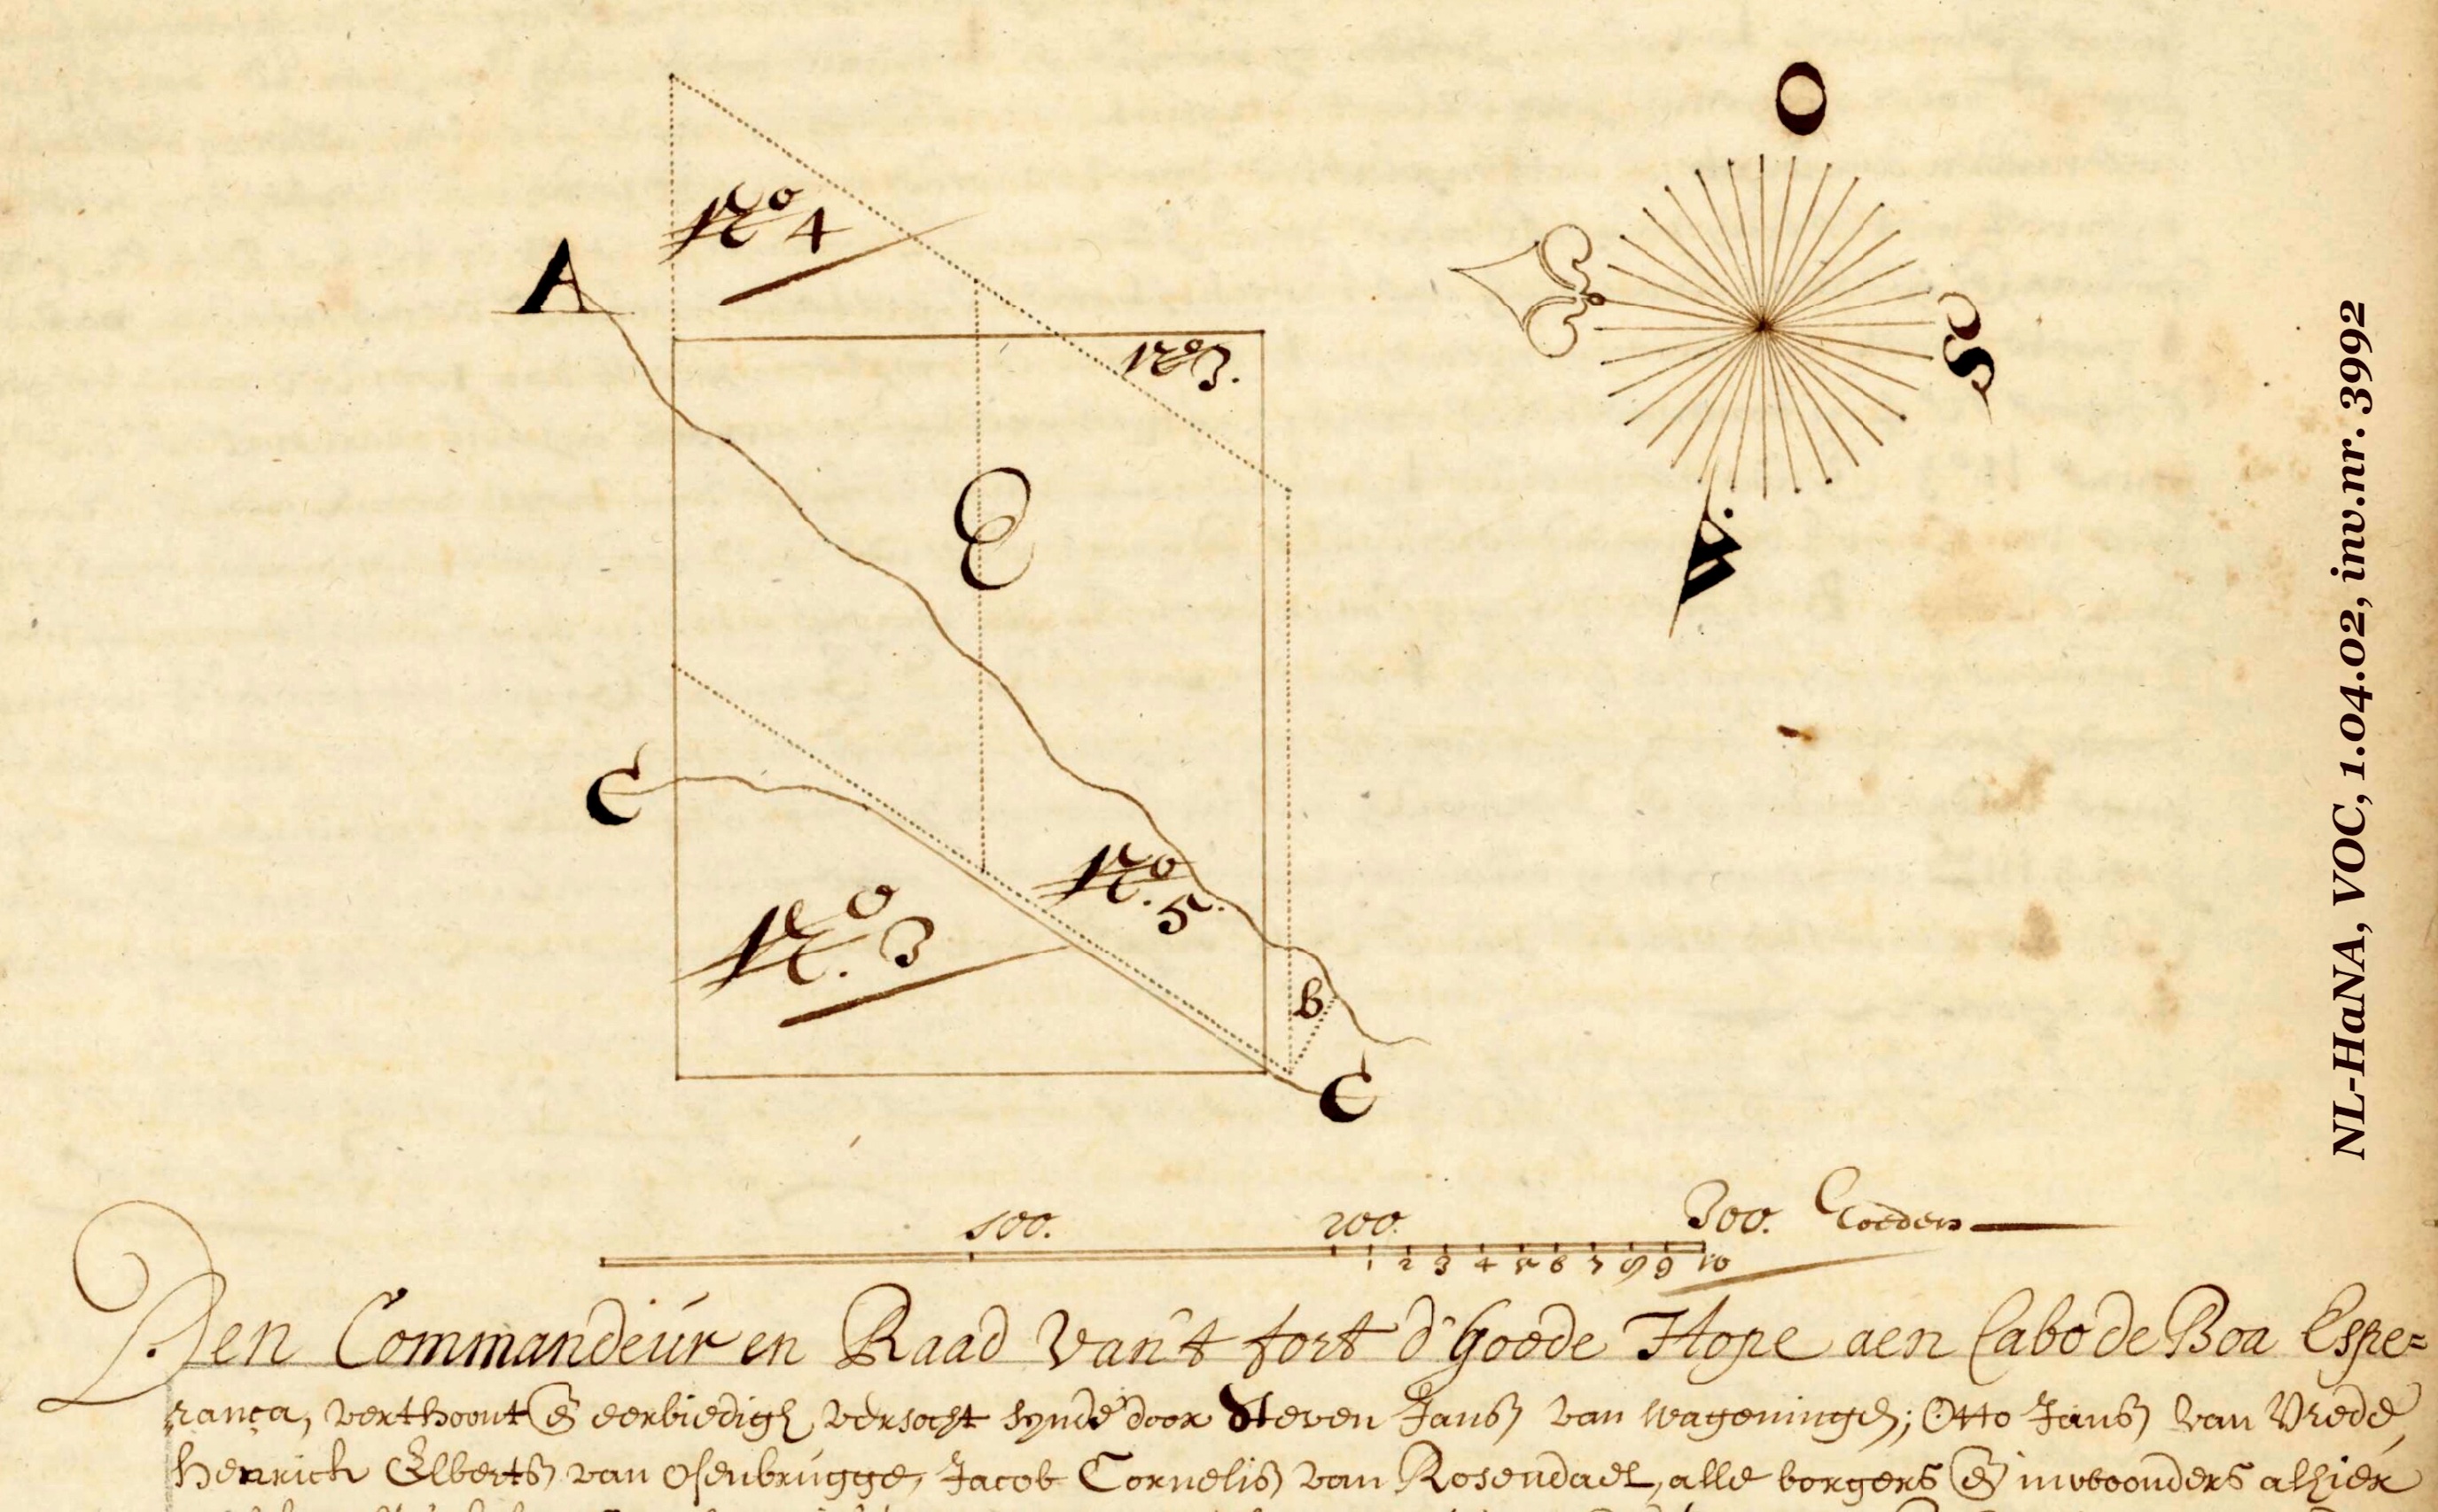 O
S
W.
No 4
A
No 3.
E
C
No. 5.
No. 3
b
C
100. 200. 300. Roeden
1 2 3 4 5 6 7 8 9 10
Den Commandeur en Raad van't fort d'Goede Hope aen Cabo de Boa Espe=
rança, verthoont & eerbiedigh versocht synde door Steven Jansz van wageningen; Otto Jansz van Vrede,
Henrick Elbertsz van Osenbrugge, Jacob Cornelisz van Rosendael, alle borgers & inwoonders alhier
NL-HaNA, VOC, 1.04.02, inv.nr. 3992